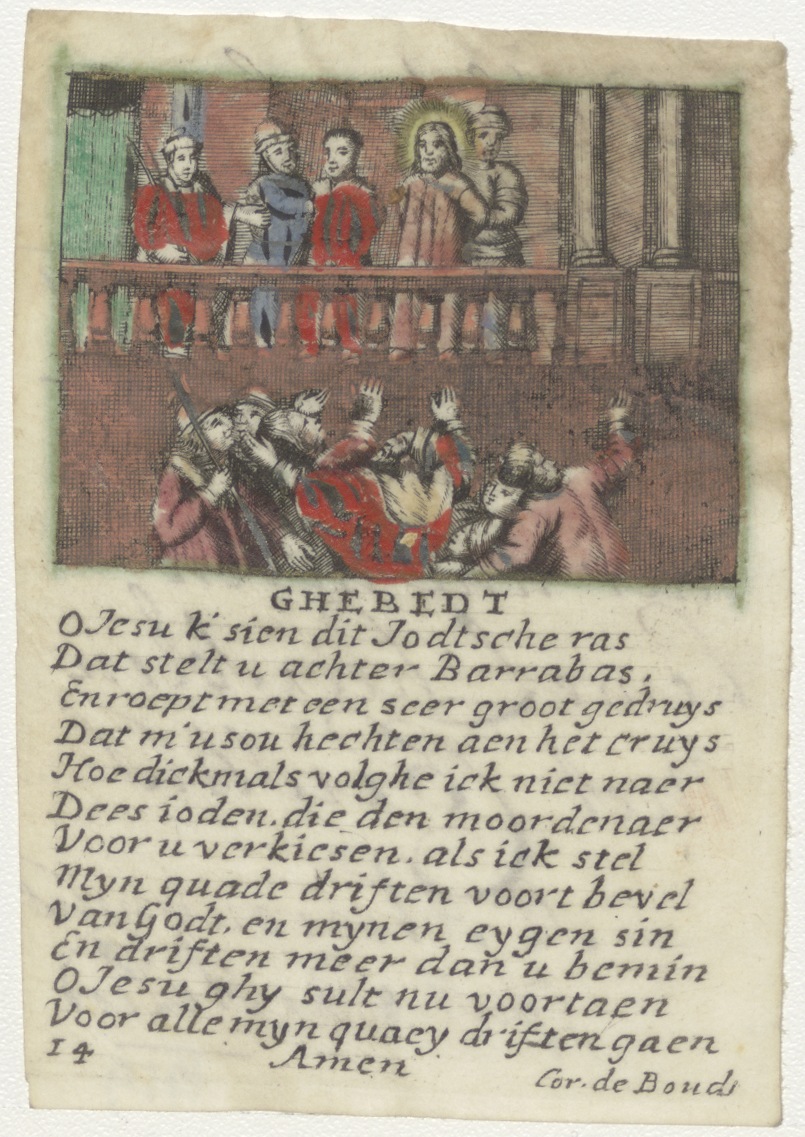 GHEBEDT
O Jesu k' sien dit Jodtsche ras
Dat stelt u achter Barrabas,
En roept met een seer groot gedruys
Dat m'u sou hechten aen het cruys
Hoe dickmals volghe ick niet naer
Dees ioden. die den moordenaer
Voor u verkiesen. als ick stel
Myn quade driften voort bevel
Van Godt. en mynen eygen sin
En driften meer dan u bemin
O Jesu ghy sult nu voortaen
Voor alle myn quaey driften gaen
14 Amen
Cor. de Boud